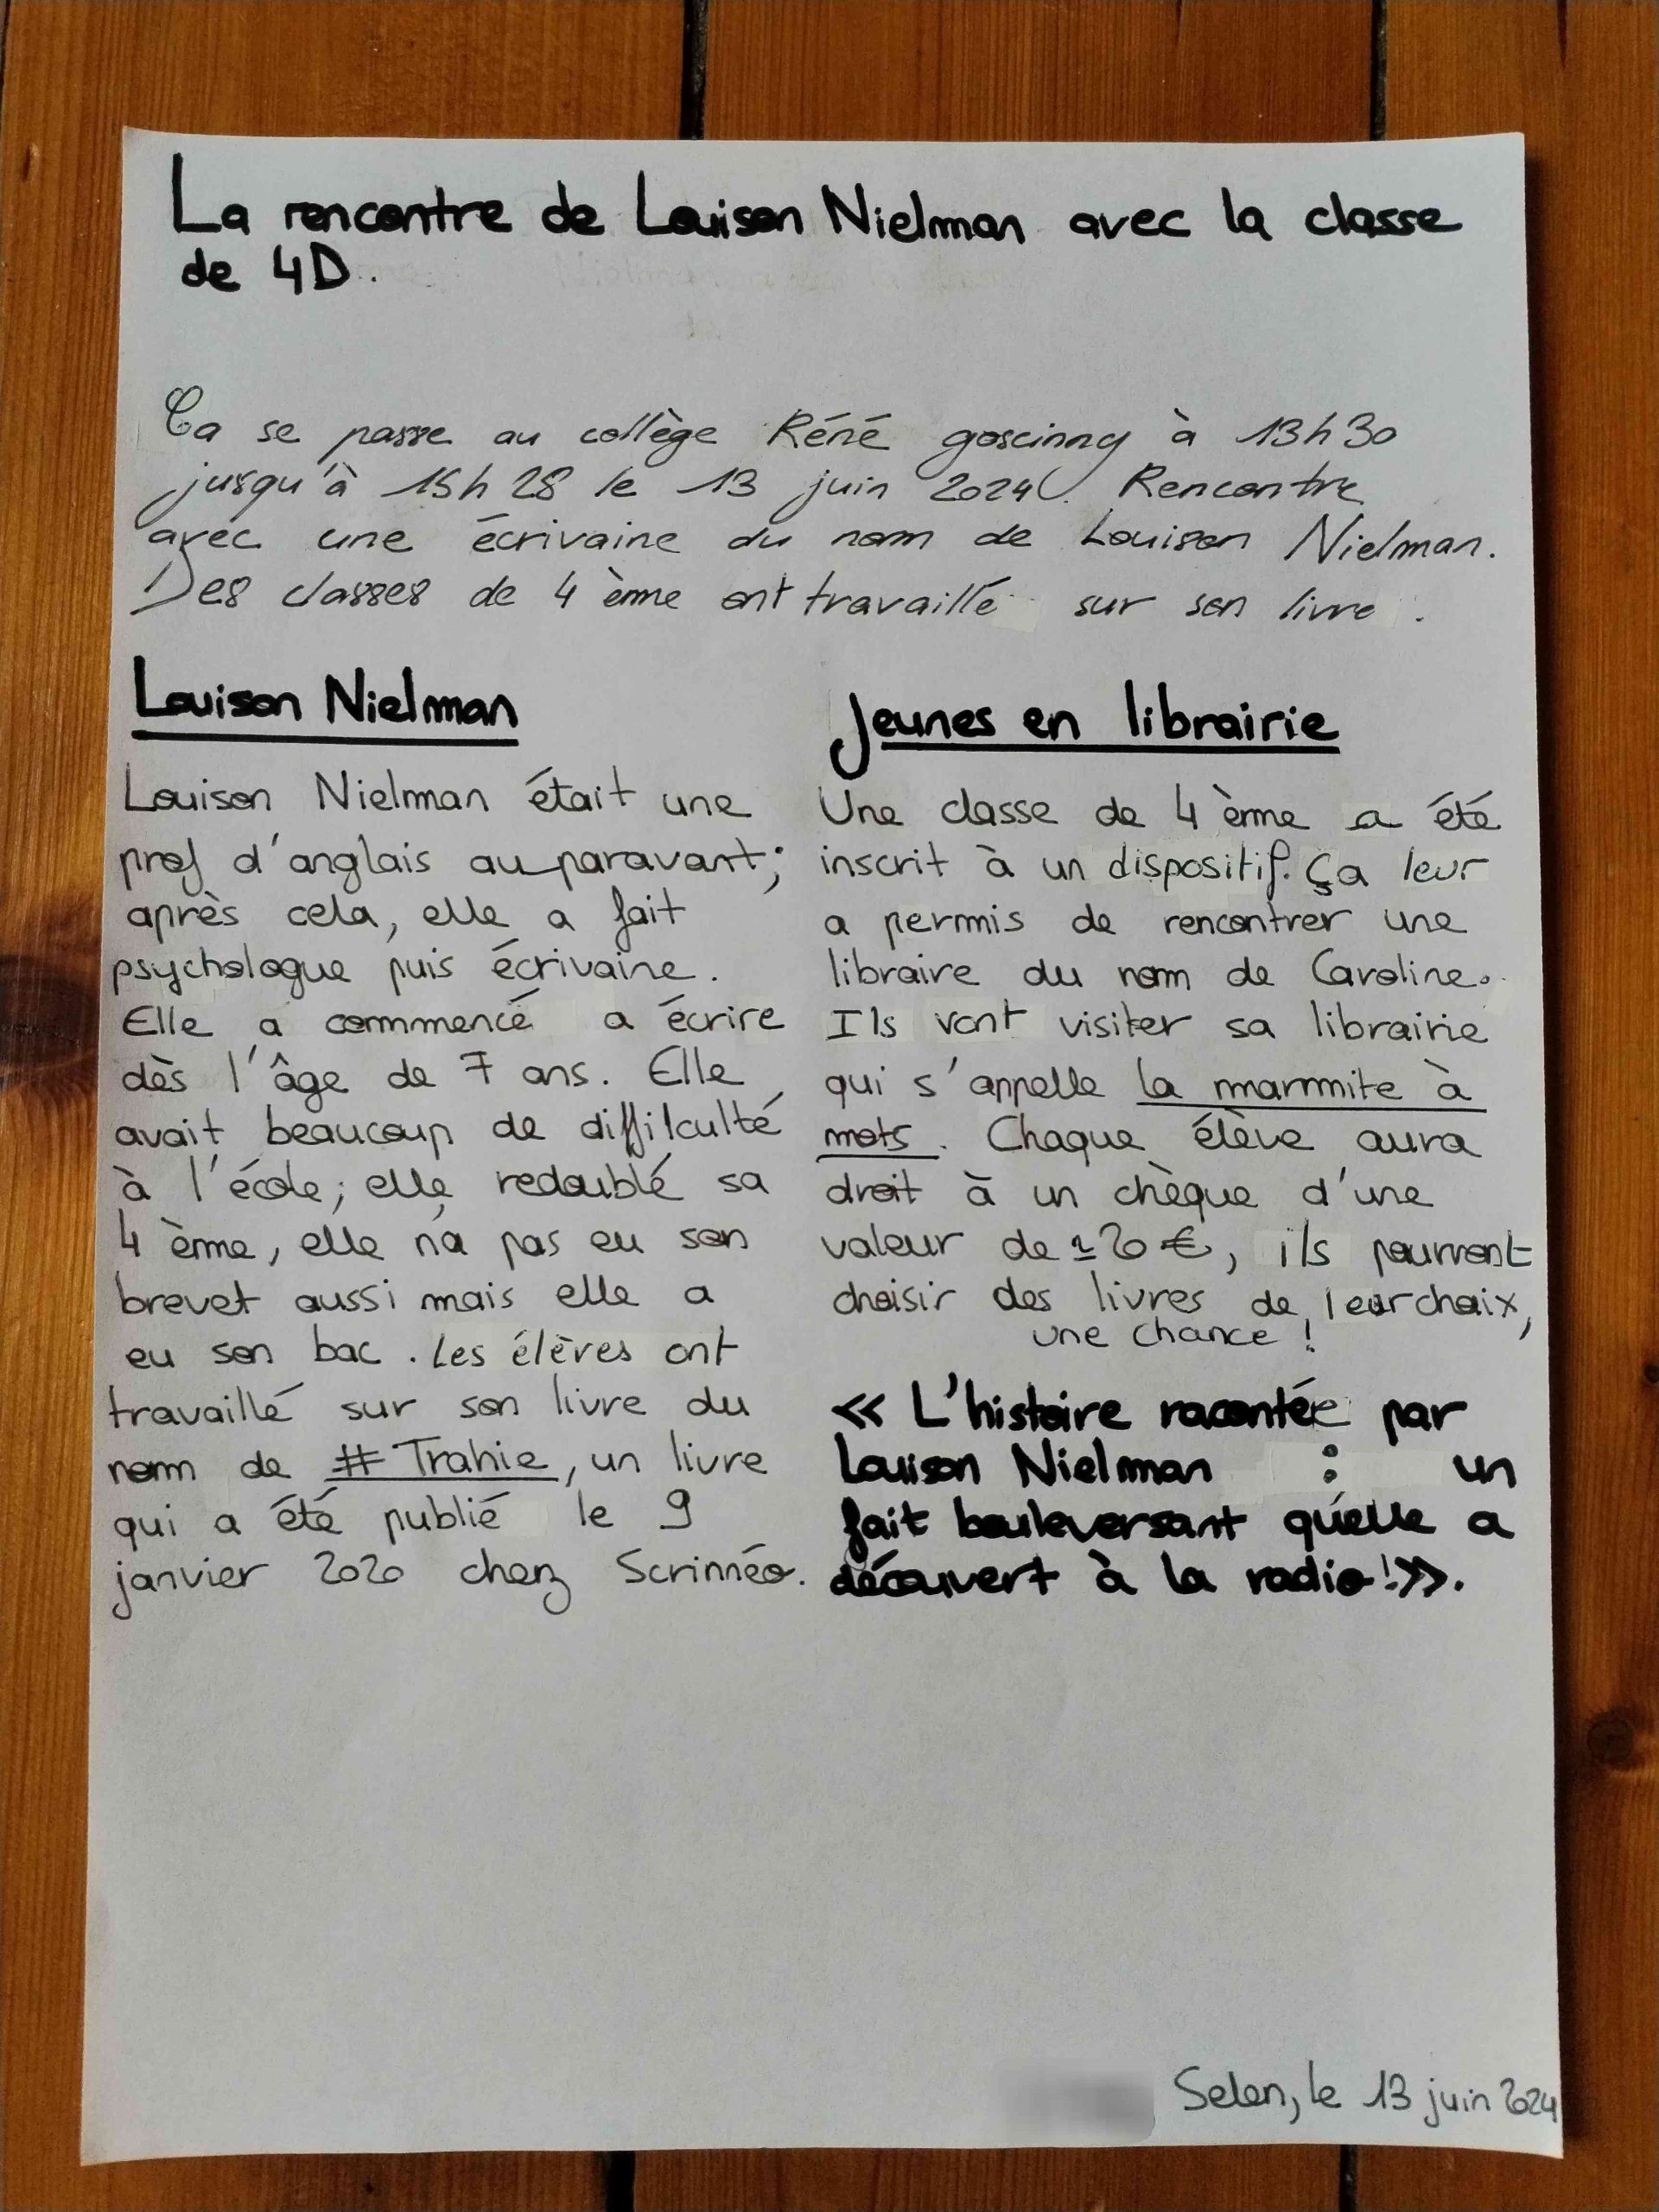 La rencontre de Louison Nielman avec la classe
de 4D.
Ça se passe au collège Réné goscinny à 13h30
jusqu'à 15h28 le 13 juin 2024. Rencontre
avec une écrivaine du nom de Louison Nielman.
Des classes de 4 ème ont travaillé sur son livre.
Louison Nielman
Louison Nielman était une
prof d'anglais auparavant;
après cela, elle a fait
psychologue puis écrivaine.
Elle a commencé a écrire
dès l'âge de 7 ans. Elle
avait beaucoup de diffilculté
à l'école; elle, redoublé sa
4 ème, elle n'a pas eu son
brevet aussi mais elle a
eu son bac. Les élèves ont
travaillé sur son livre du
nom de # Trahie, un livre
qui a été publié le 9
janvier 2020 chez Scrinéo.
Jeunes en librairie
Une classe de 4 ème a été
inscrit à un dispositif. Ça leur
a permis de rencontrer une
libraire du nom de Caroline.
Ils vont visiter sa librairie
qui s'appelle la marmite à
mots. Chaque élève aura
droit à un chèque d'une
valeur de 20€, ils pourront
choisir des livres de leur choix,
une chance !
« L'histoire racontée par
Louison Nielman : un
fait bouleversant qu'elle a
découvert à la radio!».
Selen, le 13 juin 2024